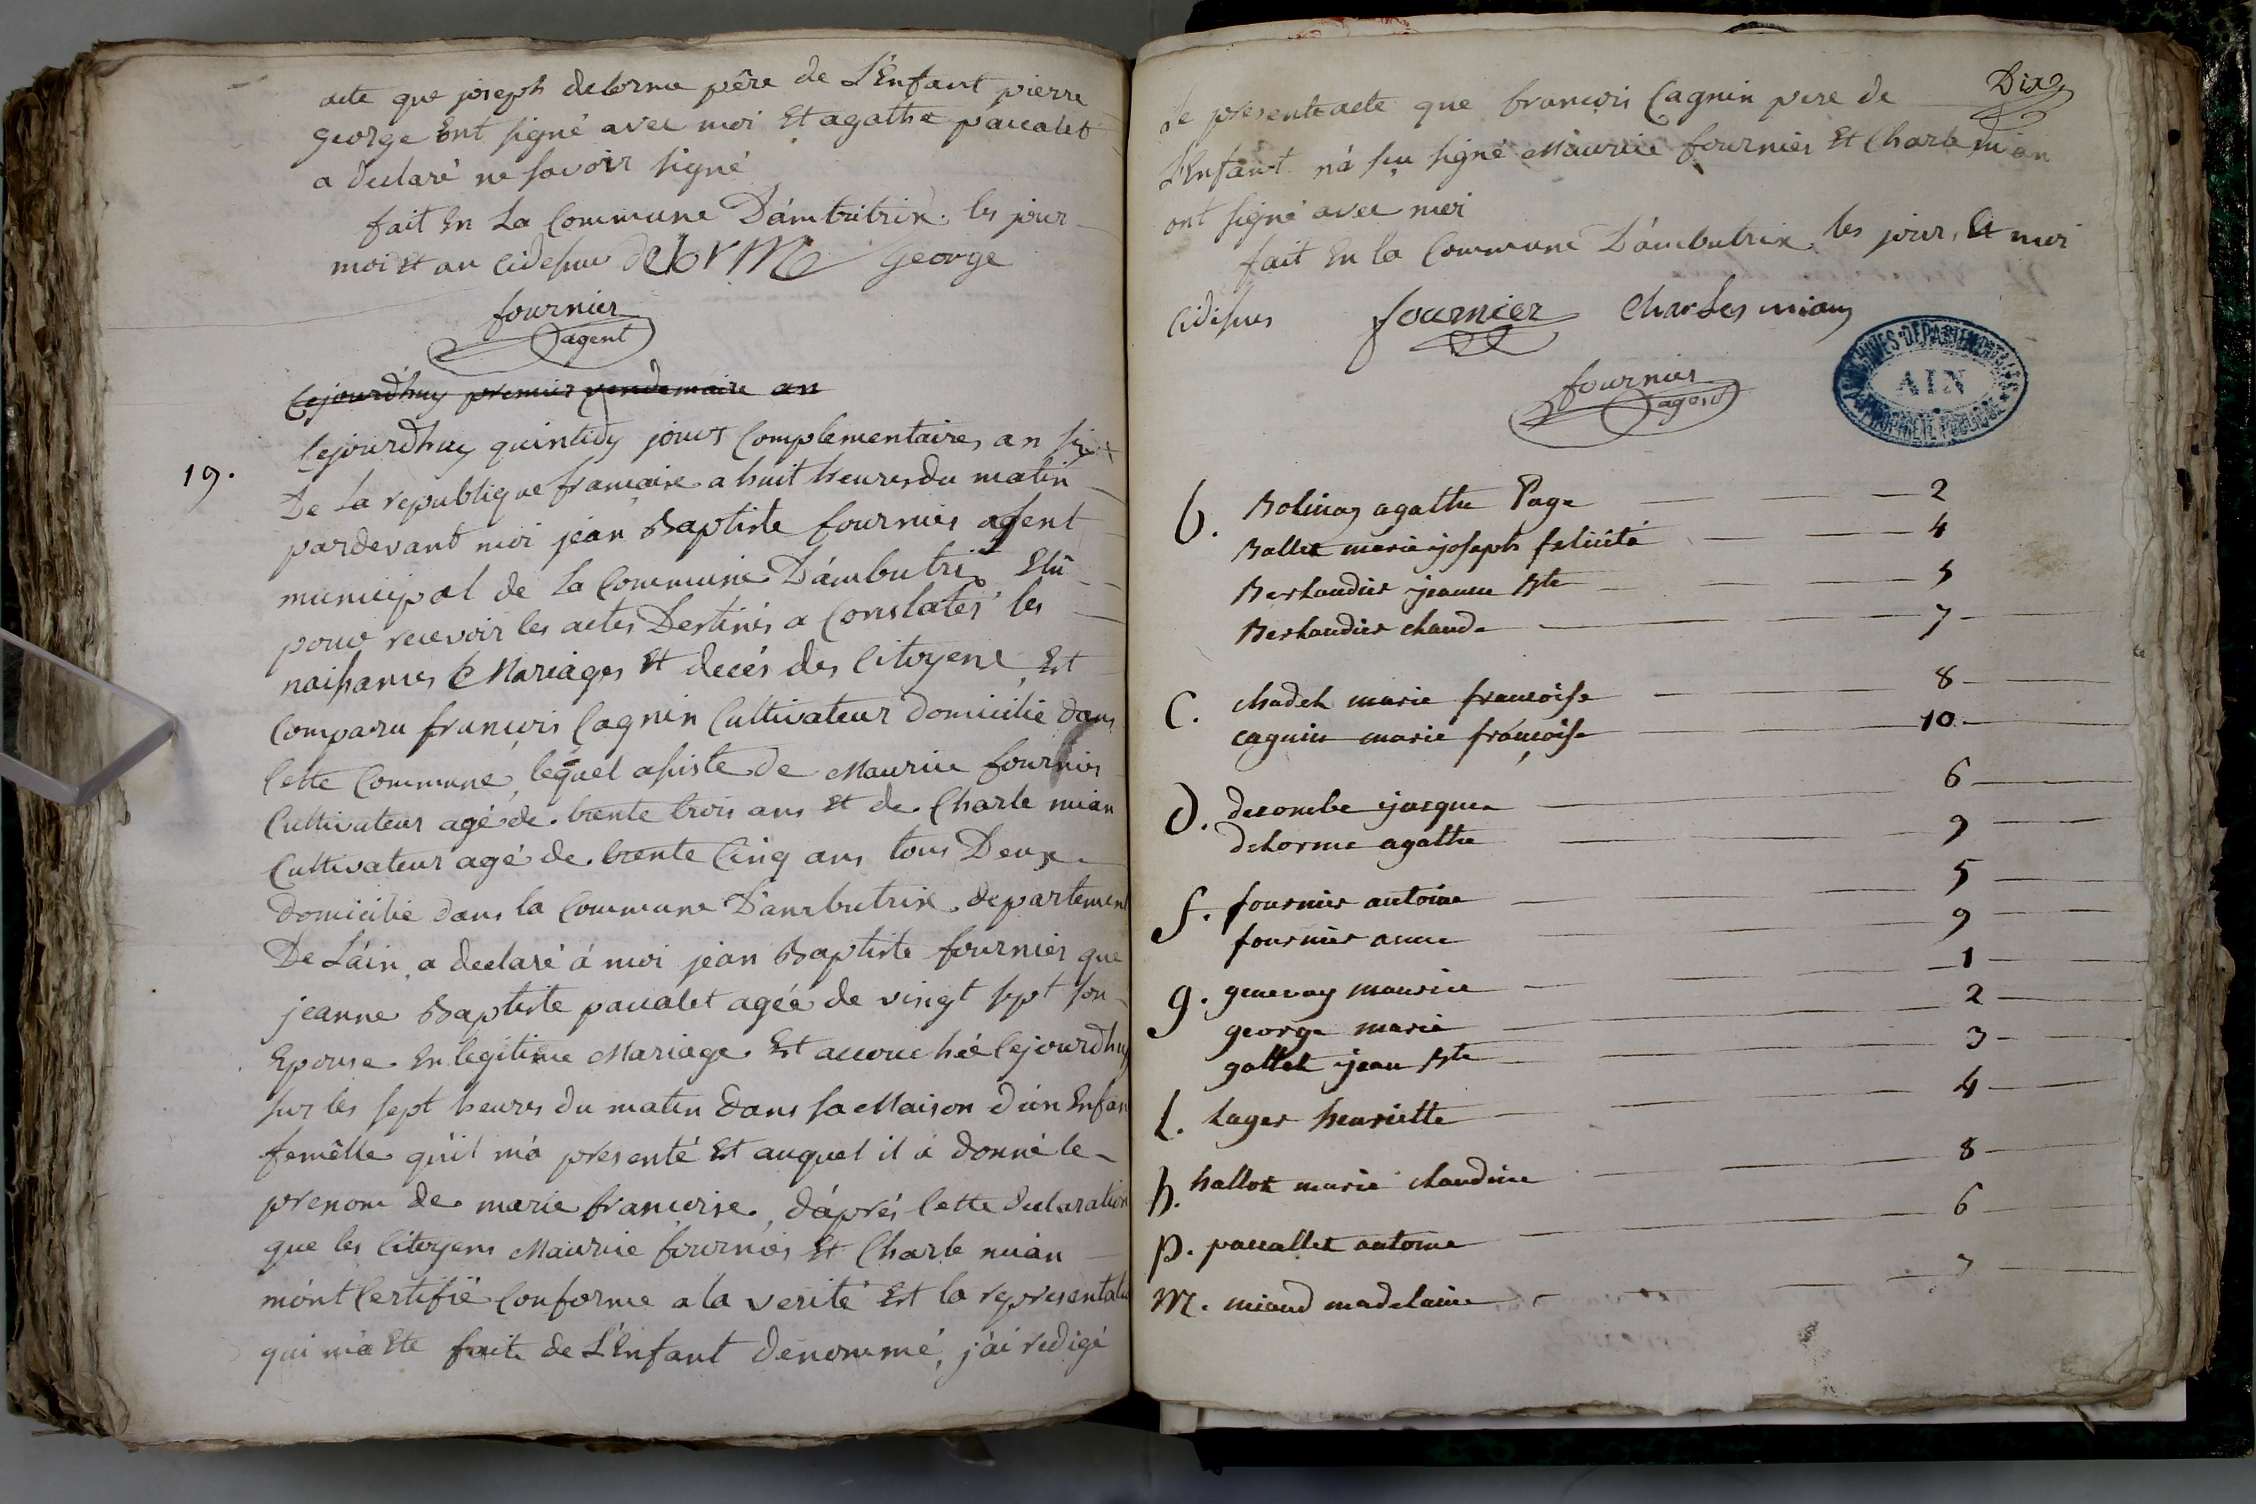 acte que joseph delorme pêre de L'Enfant pierre
george Ent signé avec moi Et agathe paucalet
a declaré ne savoir signé
fait En La Commune D'ambutrix les jour
moi et an cidesus delorme George
fournier
agent
Cejourd'huy premier vendemaire an
19.
Cejourd'huy quintidy jours Complementaires an six
De La republique francaise a huit heures du matin
pardevant moi jean Baptiste fournier agent
municipal de La Commune D'ambutrix Elû
pour recevoir les actes Destinés a Constater les
naisances Mariages Et decés des Citoyens Est
Comparu francois Cagnin Cultivateur domicilié dans
Cette Commune, lequel assiste de Maurice fournier
Cultivateur agé de trente trois ans Et de Charle mian
Cultivateur agé de trente Cinq ans tous Deux
domicilié dans la Commune D'ambutrix departement
De L'ain a declaré à moi jean Baptiste fournier que
jeanne Baptiste paucalet agée de vingt sept son
Epouse En legitime Mariage Est accouchée Cejourdhuy
sur les sept heures du matin dans sa Maison d'un Enfan
femêlle qu'il m'a presenté Et auquel il a donné le
prenom de marie francoise, d'aprés Cette declaration
que les Citoyens Maurice fournier Et Charle mian
m'ont Certifié Conforme a la verité Et la representation
qui m'a Ete faite de L'Enfant denommé, j'ai redigé
Dix
le present acte que francois Cagnin pere de
L'Enfant n'a su signé Maurice fournier Et Charle mian
ont signé avec moi
fait En la Commune D'ambutrix les jour, Et moi
cidesus fournier Charles miany
fournier
agent
ARCHIVES DÉPARTEMENTALES
AIN
PROPRIÉTÉ PUBLIQUE
b. Bolinag agathe Page 2
Ballet marie joseph felicité 4
Berlandier jeanne Bte 5
Berlandier claude 7
C. chadel marie francoise 8
cagnin marie francoise 10
d. decombe jacque 6
delorme agathe 9
f. fournier antoine 5
fournier anne 9
g. genevay maurice 1
george marie 2
gallet jean Bte 3
L. Lager henriette 4
h. hallot marie claudine 8
p. paucallet antoine 6
M. miand madelaine 7